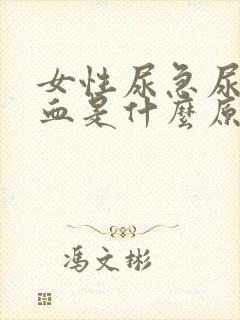 女性尿急尿
血是什麼原
馮文彬